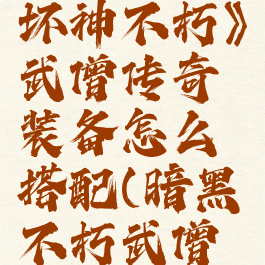 坏神不朽》
武僧传奇
装备怎么
搭配(暗黑
不朽武僧